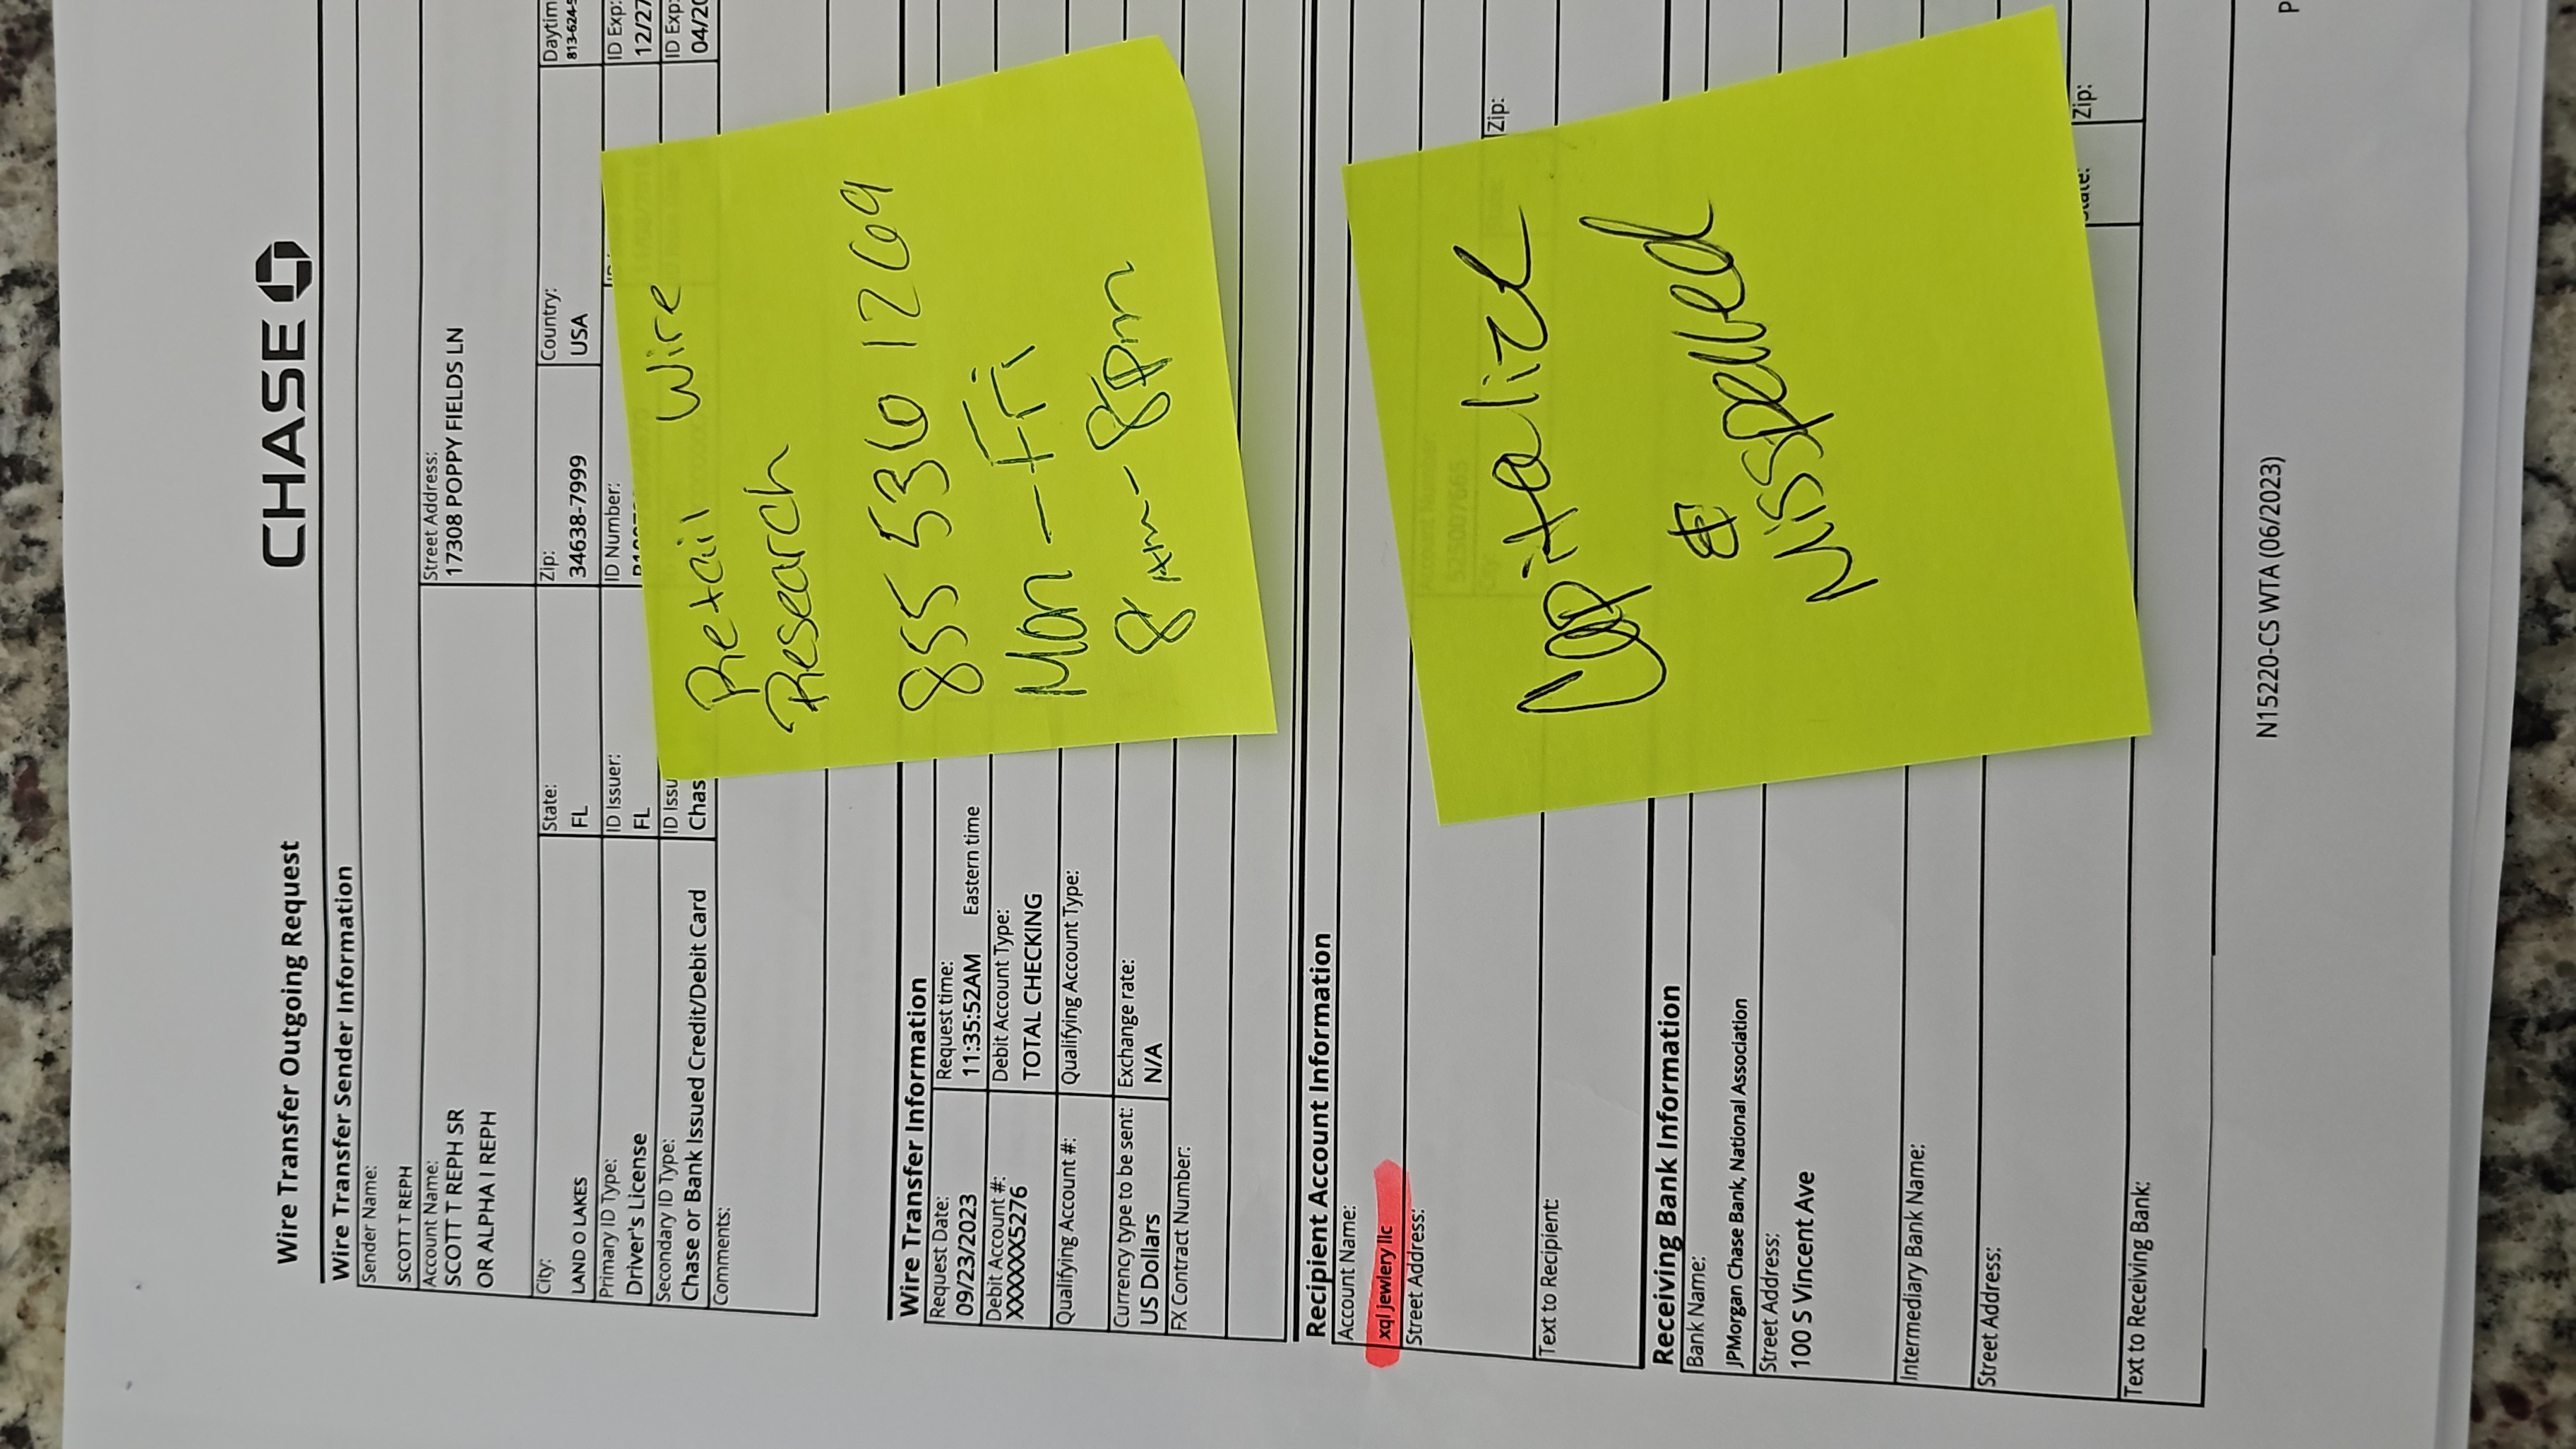 CHASE
Wire Transfer Outgoing Request
Wire Transfer Sender Information
Sender Name:
SCOTT T REPH
Account Name:
SCOTT T REPH SR
OR ALPHA I REPH
Street Address:
17308 POPPY FIELDS LN
City:
LAND O LAKES
State:
FL
Zip:
34638-7999
Country:
USA
Daytim
813-624-
Primary ID Type:
Driver's License
ID Issuer:
FL
ID Number:
ID Exp:
12/27
Secondary ID Type:
Chase or Bank Issued Credit/Debit Card
ID Issu
Chas
ID Exp:
04/20
Comments:
Retail Wire
Research
855 536 1269
Mon - Fri
8 Am - 8pm
Wire Transfer Information
Request Date:
09/23/2023
Request time:
11:35:52AM Eastern time
Debit Account #:
XXXXXX5276
Debit Account Type:
TOTAL CHECKING
Qualifying Account #:
Qualifying Account Type:
Currency type to be sent:
US Dollars
Exchange rate:
N/A
FX Contract Number:
Recipient Account Information
Account Name:
xql jewlery llc
Street Address:
Zip:
Text to Recipient:
Capitalize
&
Misspelled
Receiving Bank Information
Bank Name:
JPMorgan Chase Bank, National Association
Street Address:
100 S Vincent Ave
Intermediary Bank Name:
Street Address:
Zip:
Text to Receiving Bank:
N15220-CS WTA (06/2023)
P